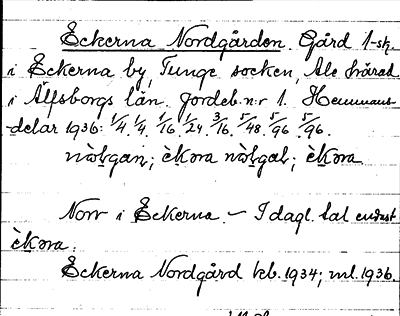 Eckerna Nordgården. Gård 1-sk.
i Eckerna by, Tunge socken, Ale härad
i Älfsborgs län. Jordeb. n:r 1. Hemmans-
delar 1936: 1/4. 1/4. 1/16. 1/24. 3/16. 5/48. 5/96. 5/96.
nòlgan; èkora nòlgal; èkora
Norr i Eckerna. – I dagl. tal endast
èkora.
Eckerna Nordgård kb. 1934; ml. 1936.